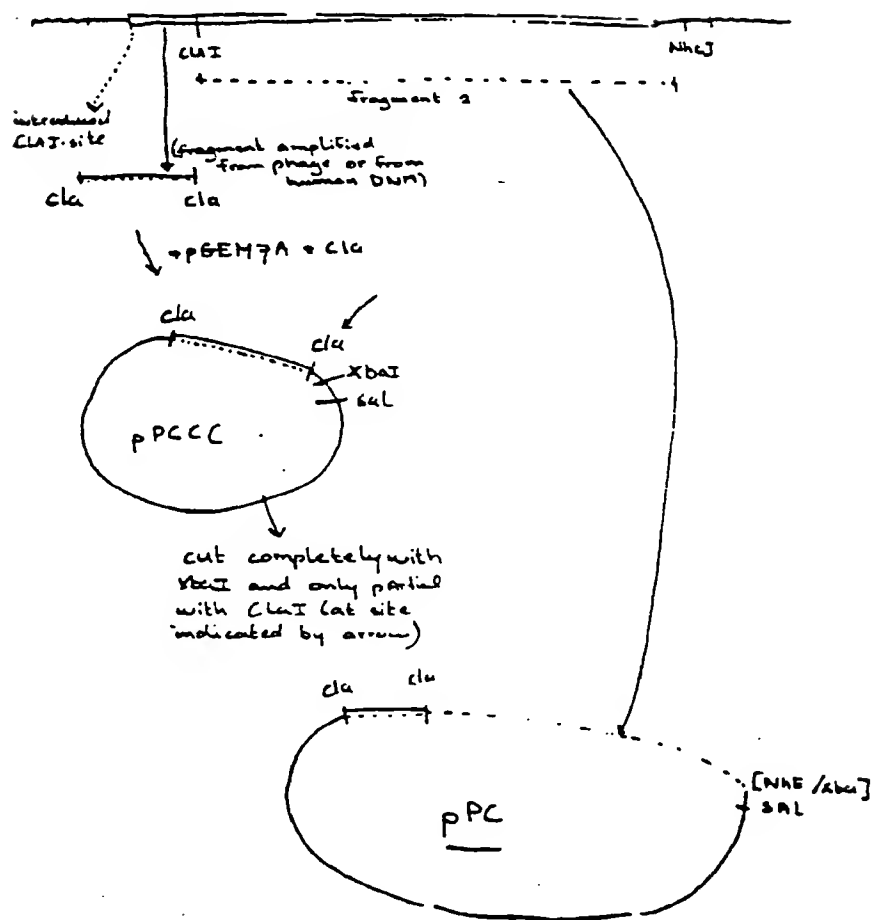 ClaI
NheI
fragment 2
introduced
ClaI-site
(fragment amplified
from phage or from
human DNA)
cla
cla
+pGEM7A * Cla
cla
cla
XbaI
sal
pPCCC
cut completely with
XbaI and only partial
with ClaI (at site
indicated by arrow)
cla
cla
[NhE/xba]
SAL
pPC